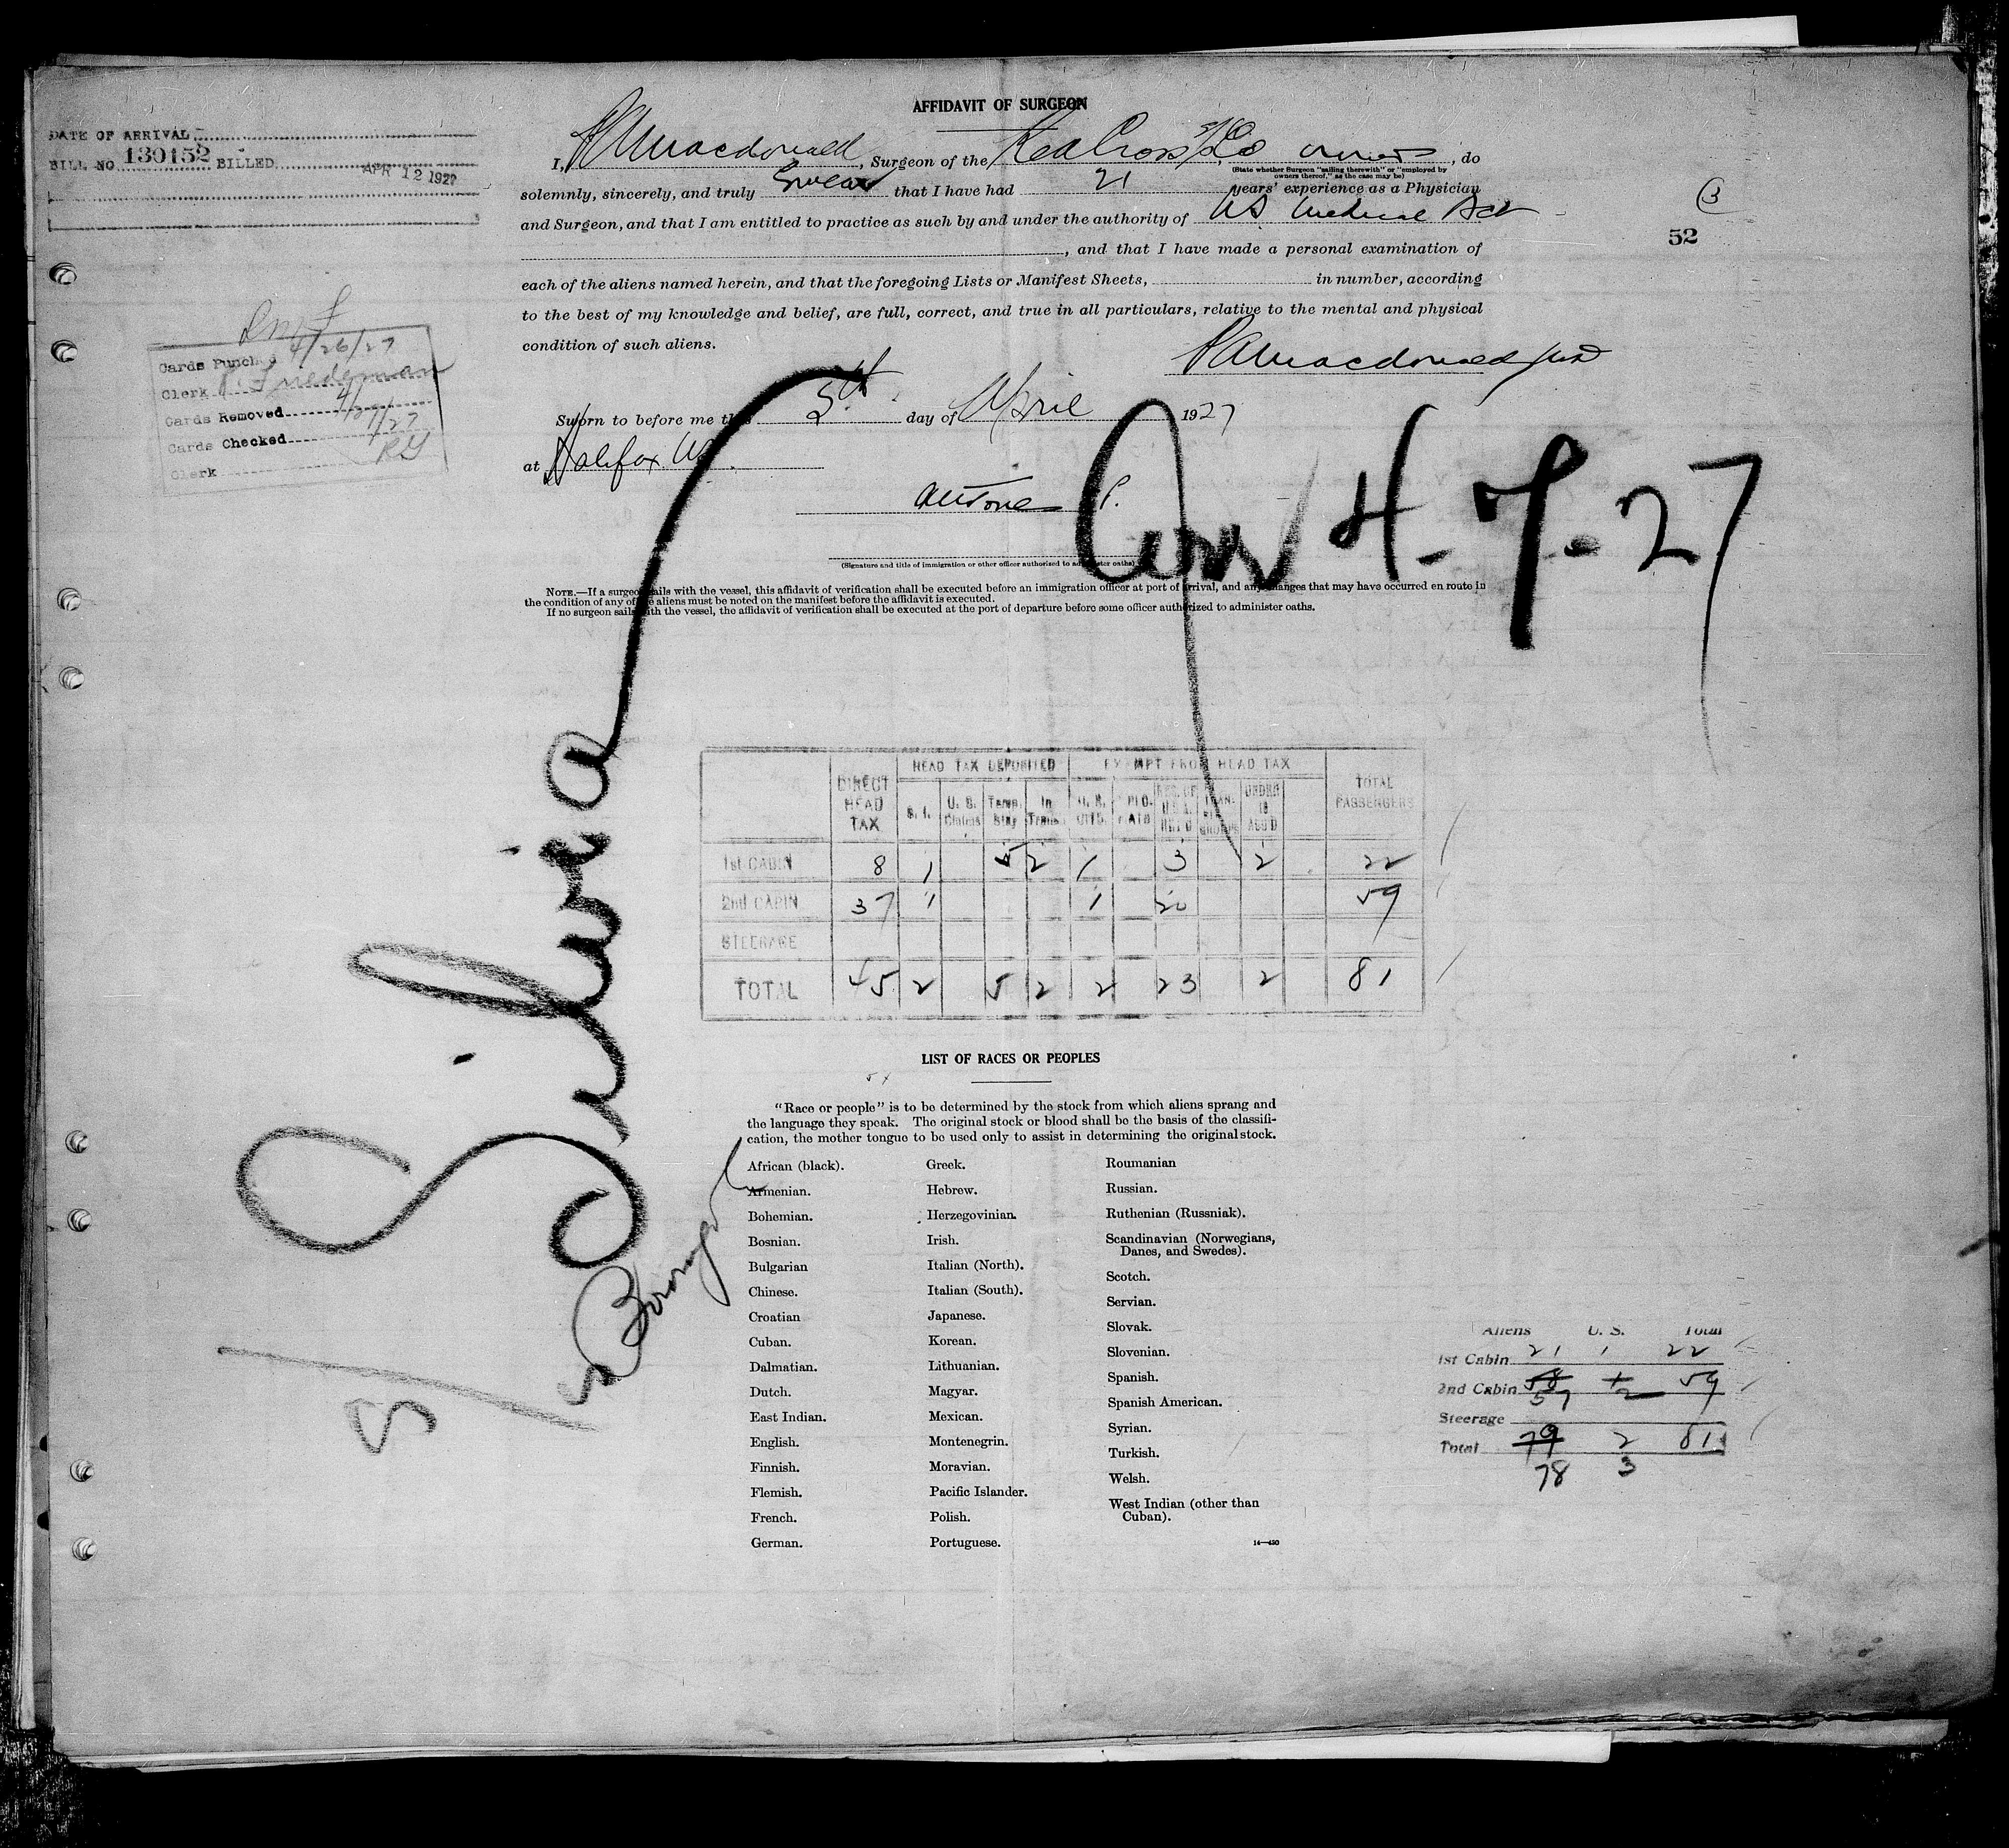 AFFIDAVIT OF SURGEON
DATE OF ARRIVAL
BILL NO 130152 BILLED APR 12 1927
I, Macdonald, Surgeon of the Red Cross S/S Co owners, do
(State whether Surgeon "sailing therewith" or "employed by
owners thereof," as the case may be)
solemnly, sincerely, and truly Swear that I have had 21 years' experience as a Physician
and Surgeon, and that I am entitled to practice as such by and under the authority of NS Medical Act
, and that I have made a personal examination of
each of the aliens named herein, and that the foregoing Lists or Manifest Sheets, in number, according
to the best of my knowledge and belief, are full, correct, and true in all particulars, relative to the mental and physical
condition of such aliens.
3
52
Macdonald
Cards Punched 4/26/27
Clerk Friedeman
Cards Removed 4/29/27
Cards Checked RG
Clerk
Sworn to before me this 5th day of April 1927
at Halifax NS.
(Signature and title of immigration or other officer authorized to administer oaths)
Arr 4-7-27
NOTE.—If a surgeon sails with the vessel, this affidavit of verification shall be executed before an immigration officer at port of arrival, and any changes that may have occurred en route in
the condition of any of the aliens must be noted on the manifest before the affidavit is executed.
If no surgeon sails with the vessel, the affidavit of verification shall be executed at the port of departure before some officer authorized to administer oaths.
Silvia
HEAD TAX DEPOSITED EXEMPT FROM HEAD TAX
DIRECT HEAD TAX S. I. U. S. Claims Temp. Stay In Transit U. S. CITS. DIPLO. MATS UNDER 16 ACC'D TOTAL PASSENGERS
1st CABIN 8 1 5 2 1 3 2 22
2nd CABIN 37 1 1 20 59
STEERAGE
TOTAL 45 2 5 2 2 23 2 81
LIST OF RACES OR PEOPLES
"Race or people" is to be determined by the stock from which aliens sprang and
the language they speak. The original stock or blood shall be the basis of the classifi-
cation, the mother tongue to be used only to assist in determining the original stock.
African (black).
Armenian.
Bohemian.
Bosnian.
Bulgarian
Chinese.
Croatian
Cuban.
Dalmatian.
Dutch.
East Indian.
English.
Finnish.
Flemish.
French.
German.
Greek.
Hebrew.
Herzegovinian.
Irish.
Italian (North).
Italian (South).
Japanese.
Korean.
Lithuanian.
Magyar.
Mexican.
Montenegrin.
Moravian.
Pacific Islander.
Polish.
Portuguese.
Roumanian
Russian.
Ruthenian (Russniak).
Scandinavian (Norwegians,
Danes, and Swedes).
Scotch.
Servian.
Slovak.
Slovenian.
Spanish.
Spanish American.
Syrian.
Turkish.
Welsh.
West Indian (other than
Cuban).
14—430
Aliens U. S. Total
1st Cabin 21 1 22
2nd Cabin 58 1 59
57 2
Steerage
Total 79 2 81
78 3